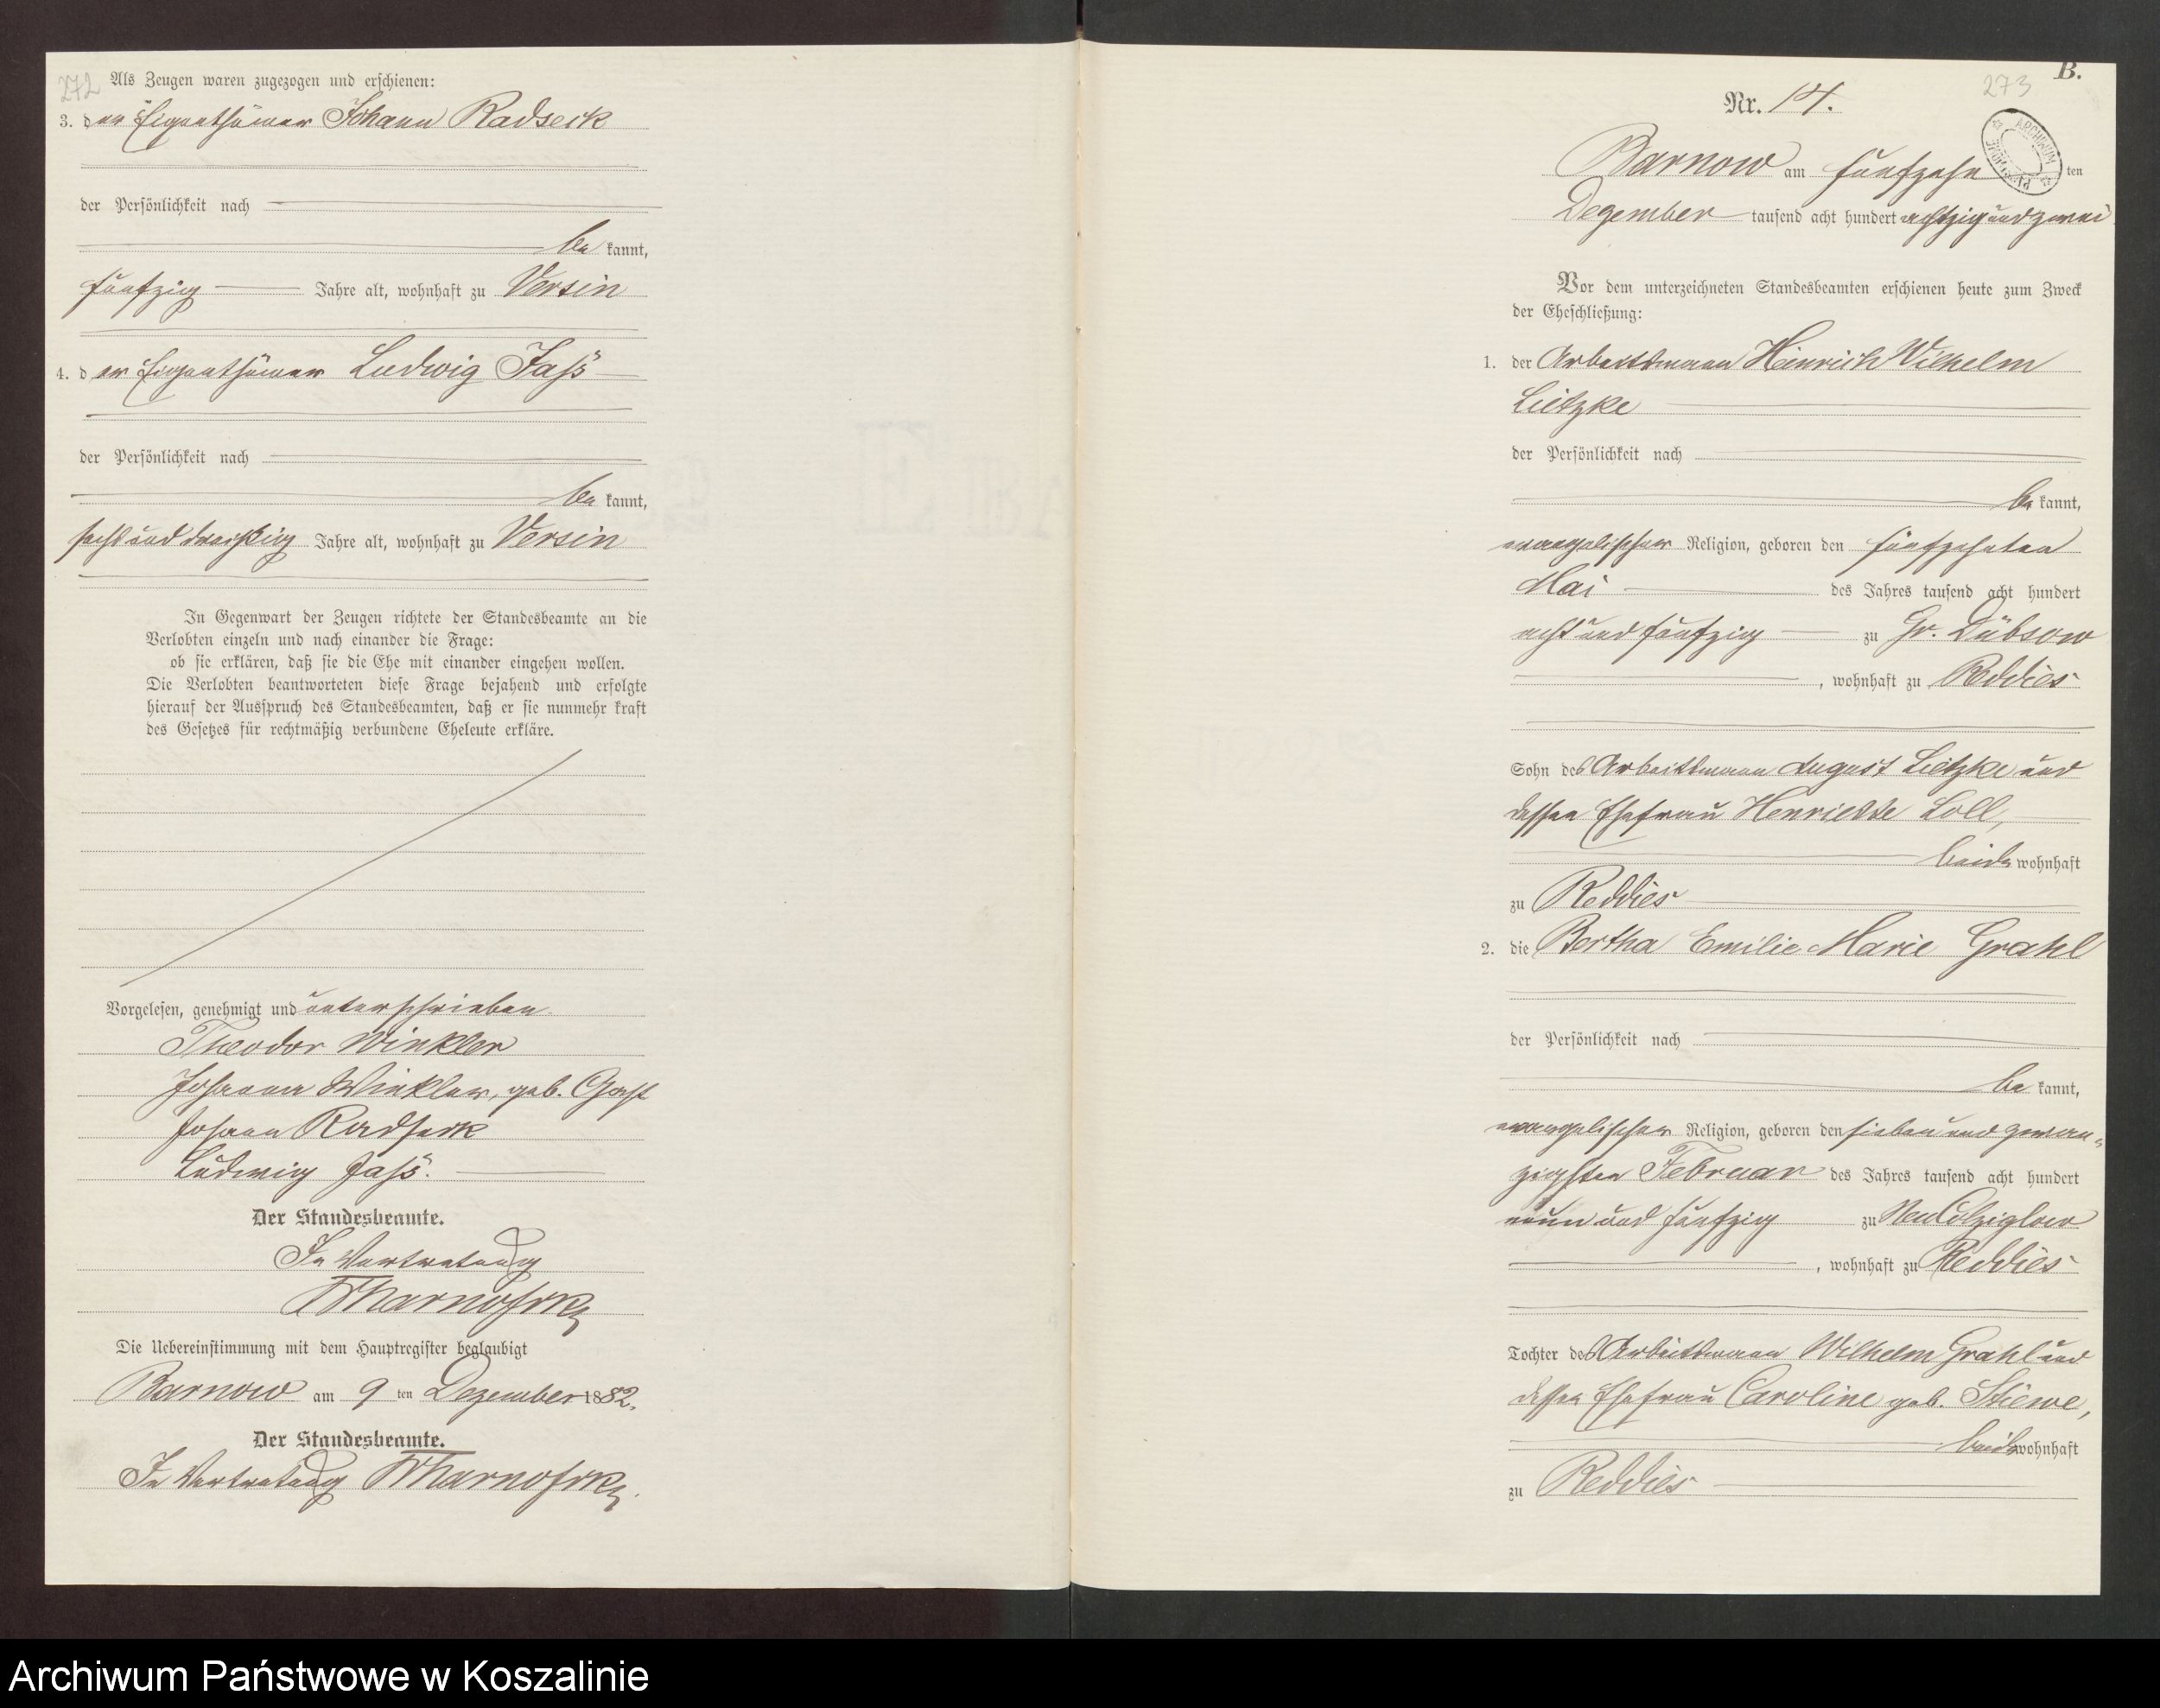 272
Als Zeugen waren zugezogen und erschienen:
3. der Eigenthümer Johann Radseck
der Persönlichkeit nach
be kannt,
fünfzig Jahre alt, wohnhaft zu Versin
4. d er Eigenthümer Ludwig Jaß
der Persönlichkeit nach
be kannt,
sechs und dreißig Jahre alt, wohnhaft zu Versin
In Gegenwart der Zeugen richtete der Standesbeamte an die
Verlobten einzeln und nach einander die Frage:
ob sie erklären, daß sie die Ehe mit einander eingehen wollen.
Die Verlobten beantworteten diese Frage bejahend und erfolgte
hierauf der Ausspruch des Standesbeamten, daß er sie nunmehr kraft
des Gesetzes für rechtmäßig verbundene Eheleute erkläre.
Vorgelesen, genehmigt und unterschrieben
Theodor Winkler
Johanna Winkler, geb.
Johann Radseck
Ludwig Jaß.
Der Standesbeamte.
In Vertretung
Die Uebereinstimmung mit dem Hauptregister beglaubigt
Barnow am 9 ten Dezember 1882.
Der Standesbeamte.
In Vertretung
B.
273
Nr. 14.
Barnow am fünfzehn ten
Dezember tausend acht hundert achtzig und zwei
Vor dem unterzeichneten Standesbeamten erschienen heute zum Zweck
der Eheschließung:
1. der Arbeitsmann Heinrich Wilhelm
Lietzke
der Persönlichkeit nach
be kannt,
evangelischer Religion, geboren den fünfzehnten
Mai des Jahres tausend acht hundert
acht und fünfzig zu Gr. Dübsow
, wohnhaft zu Reddies
Sohn des Arbeitsmann August Lietzke und
dessen Ehefrau Henriette Loll,
beide wohnhaft
zu Reddies
2. die Bertha Emilie Marie Grahl
der Persönlichkeit nach
be kannt,
evangelischer Religion, geboren den sieben und zwan-
zigsten Februar des Jahres tausend acht hundert
neun und fünfzig zu Neu Colziglow
, wohnhaft zu Reddies
Tochter des Arbeitsmann Wilhelm Grahl und
dessen Ehefrau Caroline geb. Stiewe,
beide wohnhaft
zu Reddies
Archiwum Państwowe w Koszalinie